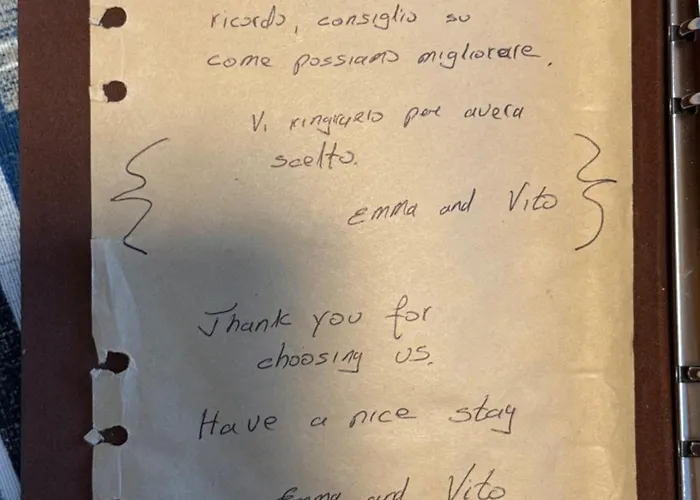 ricordo, consiglio su
come possiamo migliorare.
Vi ringrazio per averci
scelto.
Emma and Vito
Thank you for
choosing us.
Have a nice stay
Emma and Vito